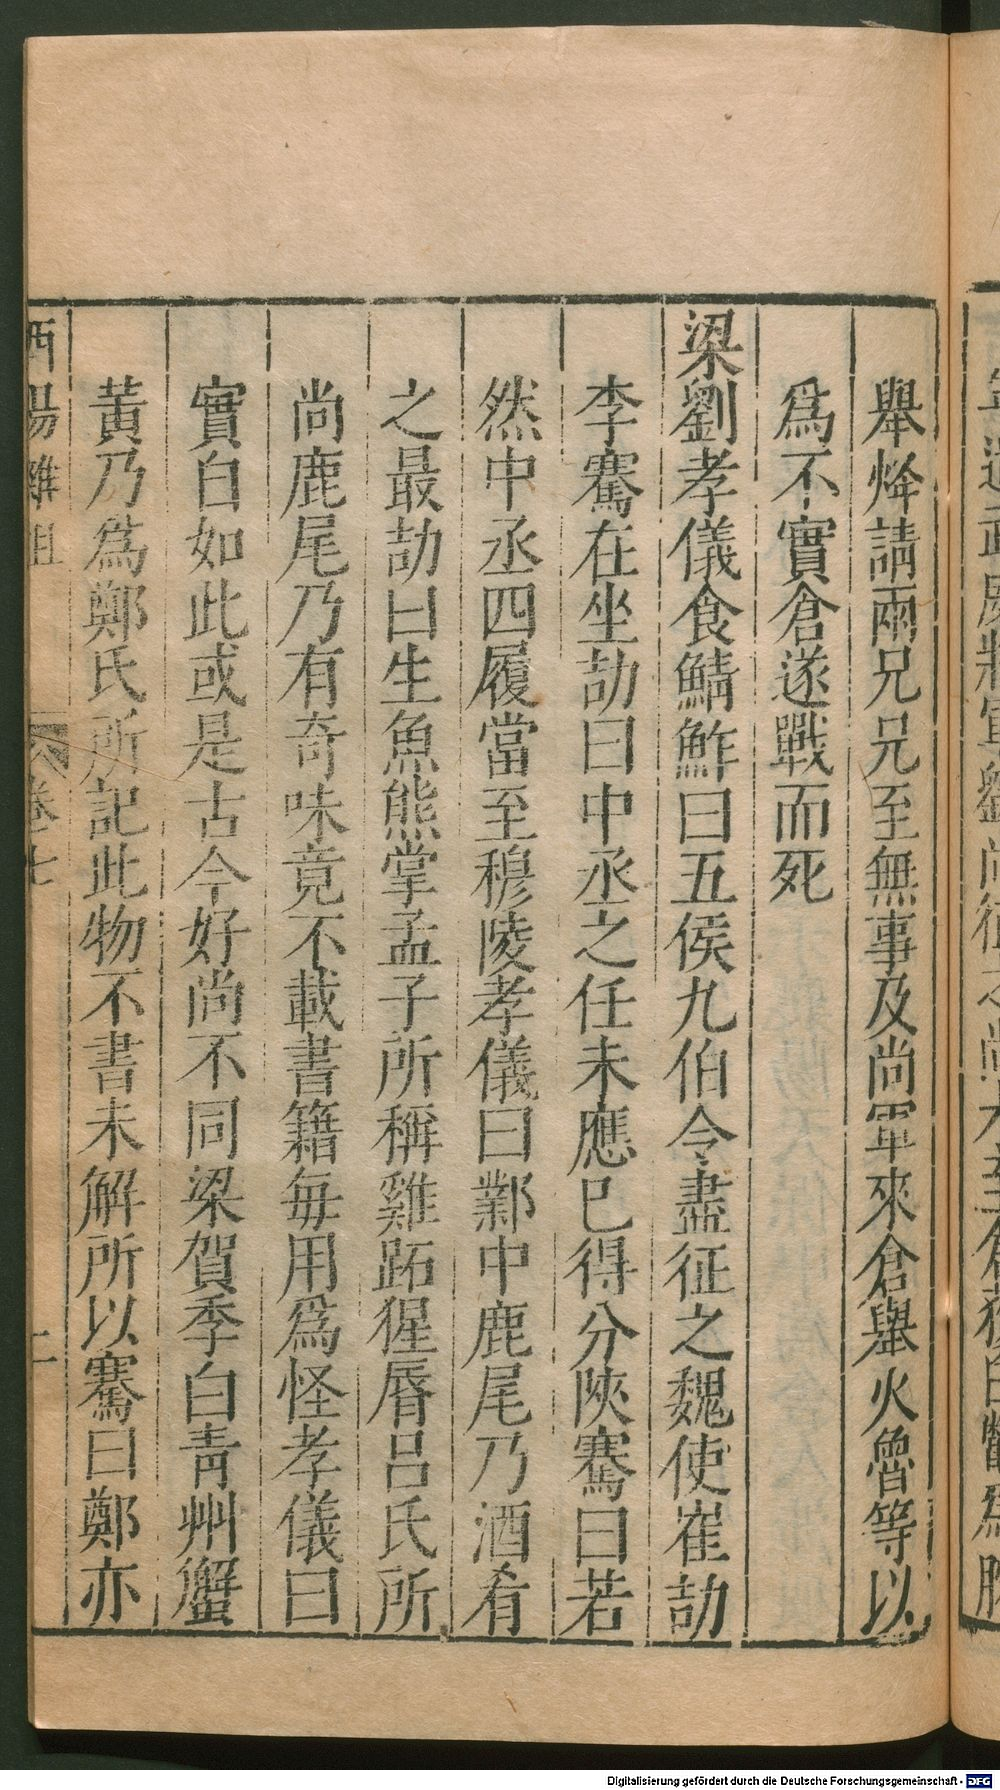 舉烽請兩兄兄至無事及尚軍來倉舉火魯等以
爲不實倉遂戰而死
梁劉孝儀食鯖鮓曰五侯九伯令盡征之魏使崔劼
李騫在坐劼曰中丞之任未應已得分陝騫曰若
然中丞四履當至穆陵孝儀曰鄴中鹿尾乃酒肴
之最劼曰生魚熊掌孟子所稱雞跖猩脣呂氏所
尚鹿尾乃有奇味竟不載書籍每用爲怪孝儀曰
實白如此或是古今好尚不同梁賀季白靑州蟹
黃乃爲鄭氏所記此物不書未解所以騫曰鄭亦
酉陽雜俎 卷七
Digitalisierung gefördert durch die Deutsche Forschungsgemeinschaft - DFG